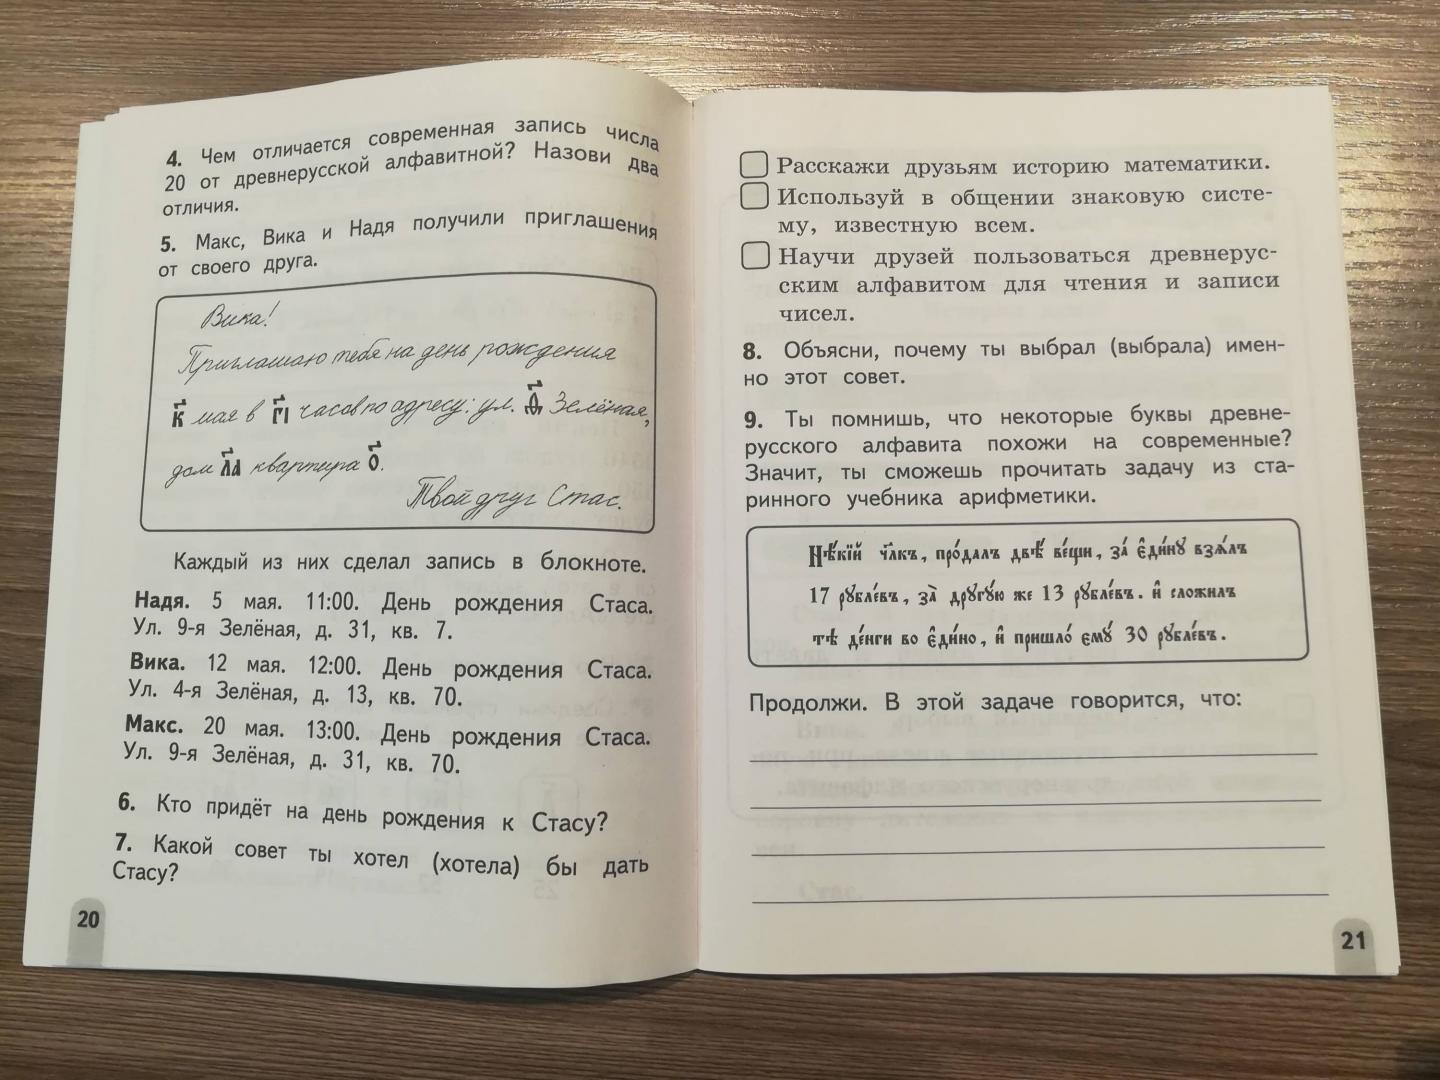 4. Чем отличается современная запись числа
20 от древнерусской алфавитной? Назови два
отличия.
5. Макс, Вика и Надя получили приглашения
от своего друга.
Вика!
Приглашаю тебя на день рождения
к҃ мая в г҃і часов по адресу: ул. ѳ҃ Зелёная,
дом л҃а квартира о҃.
Твой друг Стас.
Каждый из них сделал запись в блокноте.
Надя. 5 мая. 11:00. День рождения Стаса.
Ул. 9-я Зелёная, д. 31, кв. 7.
Вика. 12 мая. 12:00. День рождения Стаса.
Ул. 4-я Зелёная, д. 13, кв. 70.
Макс. 20 мая. 13:00. День рождения Стаса.
Ул. 9-я Зелёная, д. 31, кв. 70.
6. Кто придёт на день рождения к Стасу?
7. Какой совет ты хотел (хотела) бы дать
Стасу?
20
Расскажи друзьям историю математики.
Используй в общении знаковую систе-
му, известную всем.
Научи друзей пользоваться древнерус-
ским алфавитом для чтения и записи
чисел.
8. Объясни, почему ты выбрал (выбрала) имен-
но этот совет.
9. Ты помнишь, что некоторые буквы древне-
русского алфавита похожи на современные?
Значит, ты сможешь прочитать задачу из ста-
ринного учебника арифметики.
Нѣ́кїй ч҃лкъ, про́далъ двѣ̀ ве́щи, за́ є҆ди́нꙋ взѧ́лъ
17 рꙋбле́въ, за̀ дрꙋгꙋ́ю же 13 рꙋбле́въ. и҆ сложилъ
тѣ̀ де́нги во є҆ди́но, и҆ пришло́ емꙋ́ 30 рꙋбле́въ.
Продолжи. В этой задаче говорится, что:
21